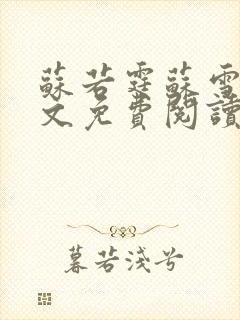 蘇若霆蘇雪
文免費閱讀
暮若淺兮